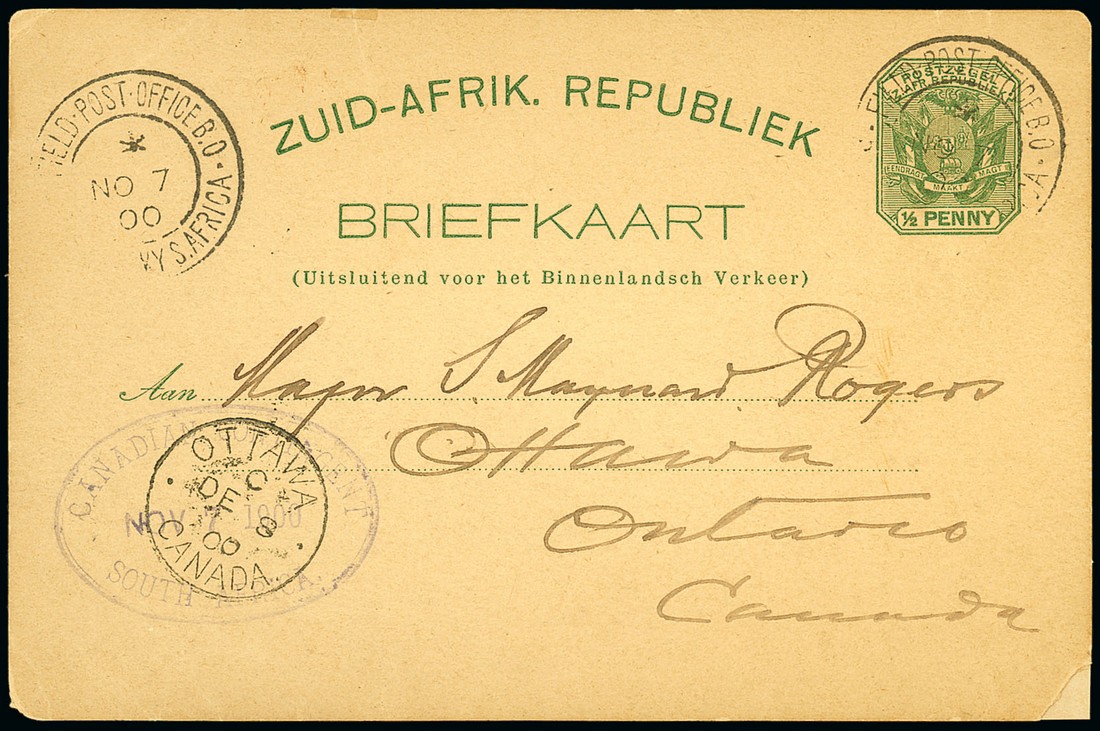 FIELD·POST·OFFICE B.O·
NO 7
00
S.AFRICA·
ZUID-AFRIK. REPUBLIEK
POST·OFFICE B.O·
POSTZEGEL
Z.AFR.REPUBLIEK
EENDRAGT MAAKT MAGT
½ PENNY
BRIEFKAART
(Uitsluitend voor het Binnenlandsch Verkeer)
Aan Major S Maynard Rogers
Ottawa
Ontario
Canada
CANADIAN CONTINGENT
NOV 7 1900
SOUTH AFRICA.
OTTAWA
C
DE 8
00
CANADA